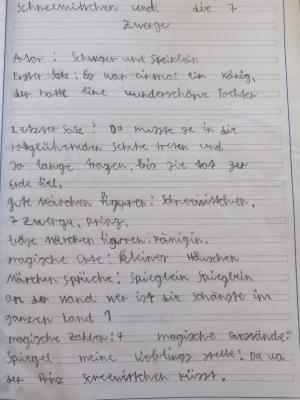 Schneewittchen und die 7
Zwerge
Autor: Schwager und Steinlein
Erster Satz: Es war einmal ein König,
der hatte eine wunderschöne Tochter
Letzter Satz: Da musste se in die
rotglühenden Schuhe treten und
so lange tragen, bis sie tot zur
Erde fiel.
gute Märchen figuren: Schneewittchen,
7 Zwerge, Prinz,
böse Märchen figuren: Königin.
magische Orte: kleines Häuschen
Märchen sprüche: Spieglein Spieglein
an der Wand wer ist die schönste im
ganzen Land?
magische Zahlen: 7 magische
Spiegel meine Lieblings stelle: Da wo
der Prinz Schneewittchen küsst.